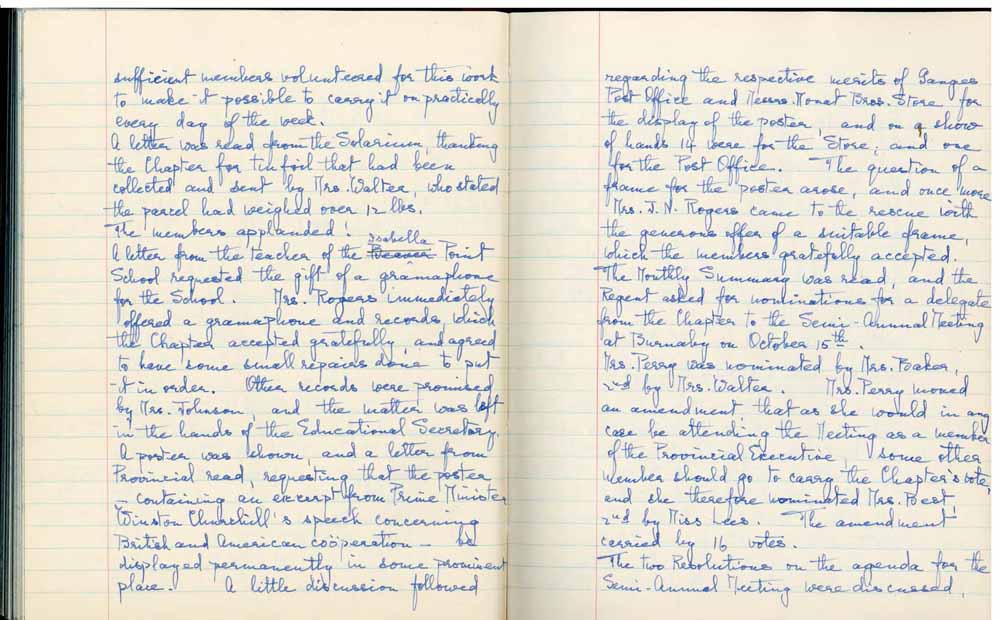 sufficient members volunteered for this work
to make it possible to carry it on practically
every day of the week.
A letter was read from the Solarium, thanking
the Chapter for tin foil that had been
collected and sent by Mrs. Walter, who stated
the parcel had weighed over 12 lbs.
The members applauded!
Isabella
A letter from the teacher of the Beaver Point
School requested the gift of a gramaphone
for the School. Mrs. Rogers immediately
offered a gramaphone and records, which
the Chapter accepted gratefully, and agreed
to have some small repairs done to put
it in order. Other records were promised
by Mrs. Johnson, and the matter was left
in the hands of the Educational Secretary.
A poster was shown, and a letter from
Provincial read, requesting that the poster
— containing an excerpt from Prime Minister
Winston Churchill's speech concerning
British and American coöperation — be
displayed permanently in some prominent
place. A little discussion followed
regarding the respective merits of Ganges
Post Office and Messrs. Mouat Bros. Store for
the display of the poster, and on a show
of hands 14 were for the Store, and one
for the Post Office. The question of a
frame for the poster arose, and once more
Mrs. J. N. Rogers came to the rescue with
the generous offer of a suitable frame,
which the members gratefully accepted.
The Monthly Summary was read, and the
Regent asked for nominations for a delegate
from the Chapter to the Semi-Annual Meeting
at Burnaby on October 15th.
Mrs. Perry was nominated by Mrs. Baker,
2nd by Mrs. Walter. Mrs. Perry moved
an amendment that as she would in any
case be attending the Meeting as a member
of the Provincial Executive, some other
member should go to carry the Chapter's vote,
and she therefore nominated Mrs. Best,
2nd by Miss Lees. The amendment
carried by 16 votes.
The two Resolutions on the agenda for the
Semi-Annual Meeting were discussed,